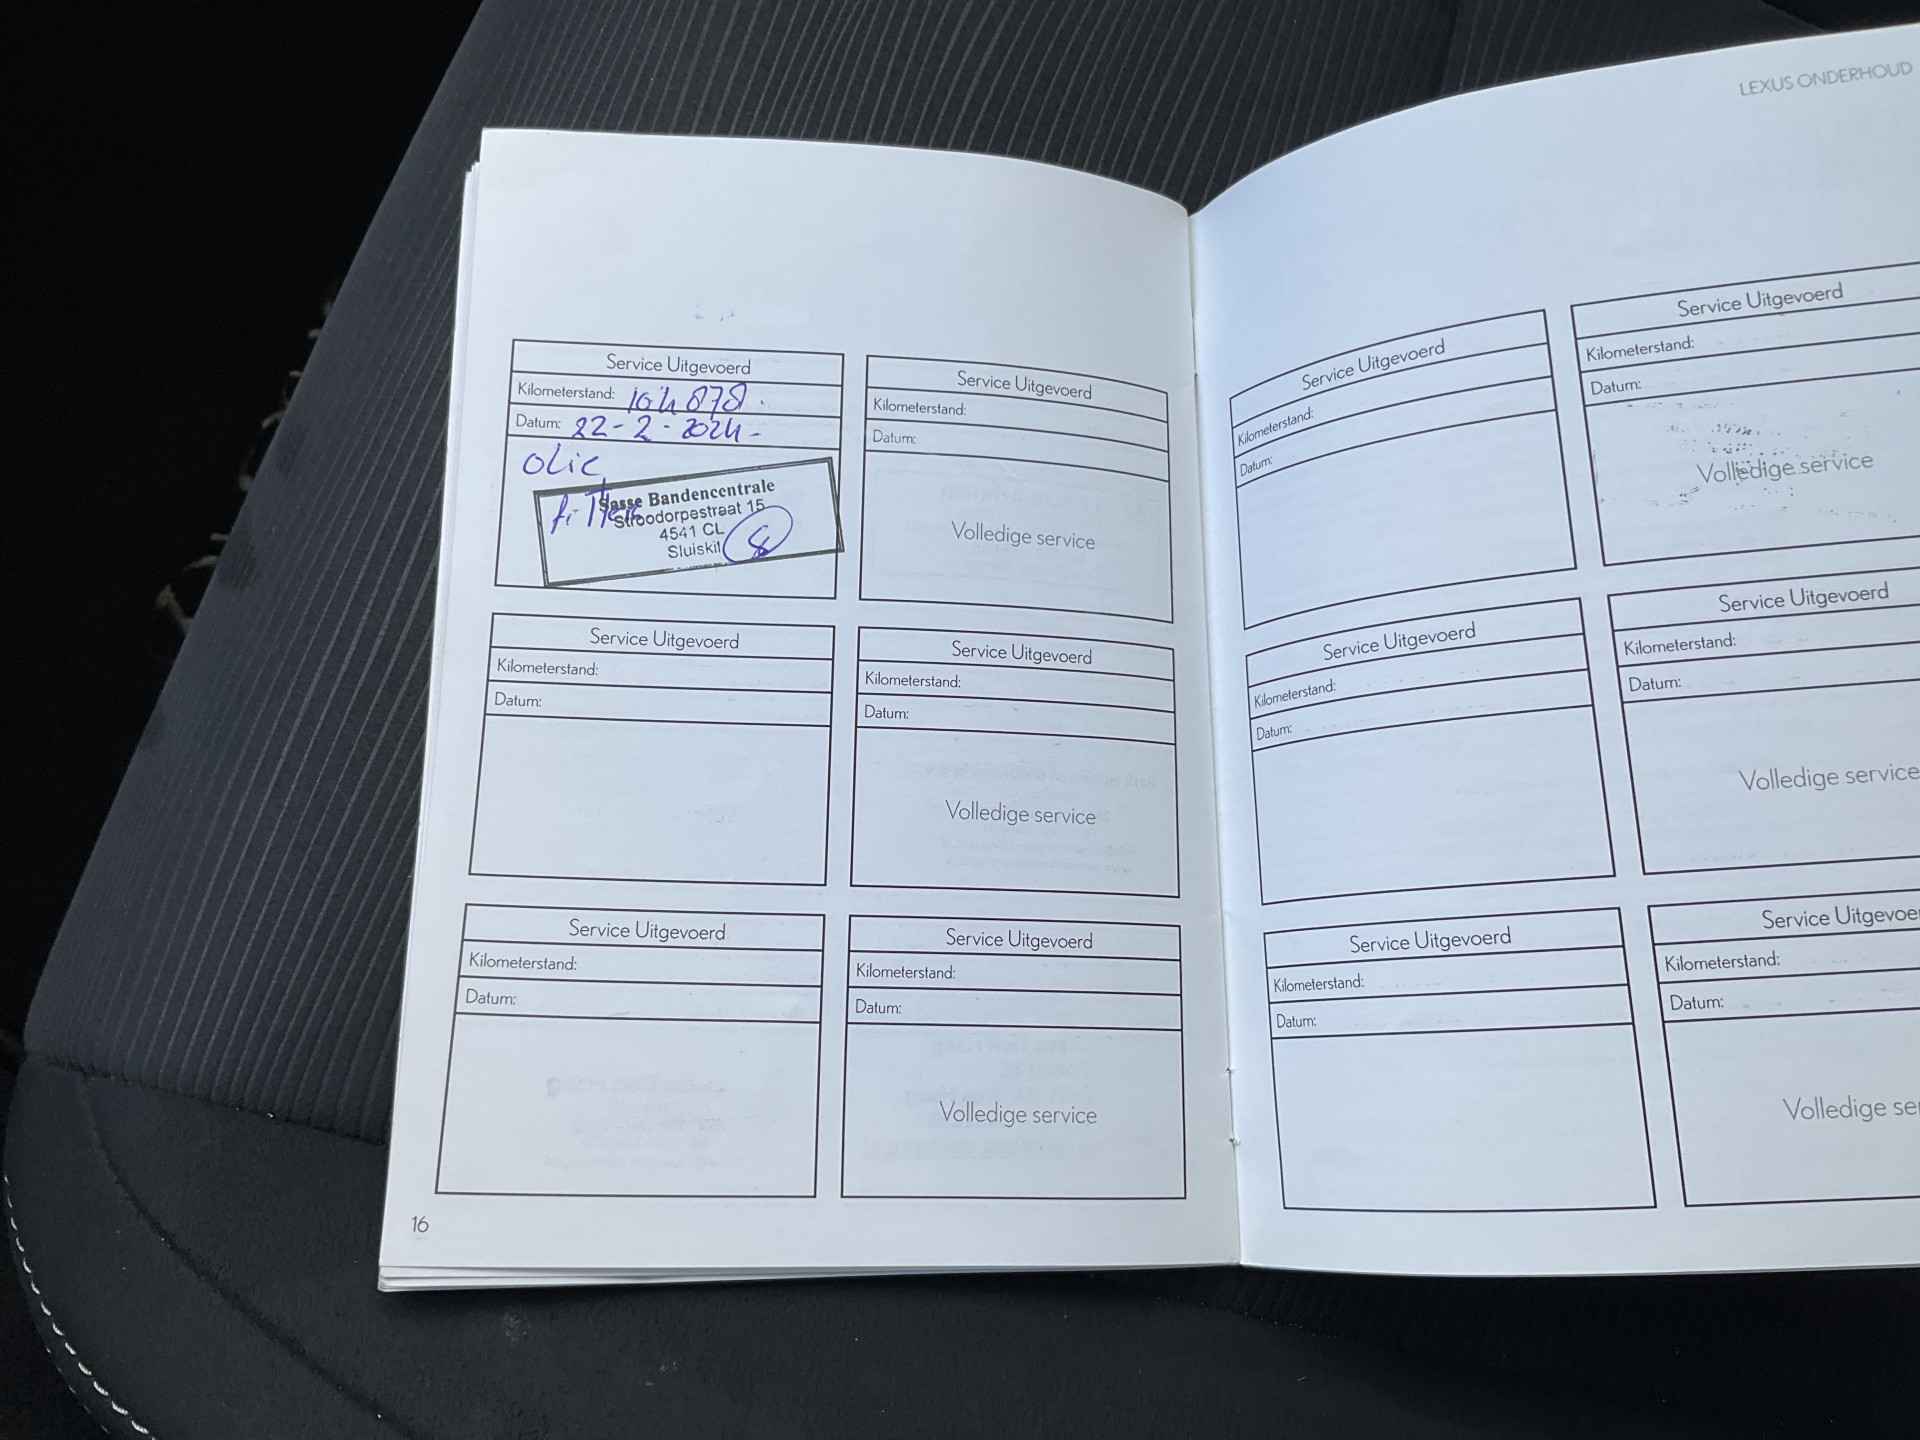 LEXUS ONDERHOUD
Service Uitgevoerd
Kilometerstand: 104 878.
Datum: 22-2-2024-
olie
filter
Sasse Bandencentrale
Stroodorpestraat 15
4541 CL
Sluiskil
Service Uitgevoerd
Kilometerstand:
Datum:
Volledige service
Service Uitgevoerd
Kilometerstand:
Datum:
Service Uitgevoerd
Kilometerstand:
Datum:
Volledige service
Service Uitgevoerd
Kilometerstand:
Datum:
Service Uitgevoerd
Kilometerstand:
Datum:
Volledige service
16
Service Uitgevoerd
Kilometerstand:
Datum:
Service Uitgevoerd
Kilometerstand:
Datum:
Volledige service
Service Uitgevoerd
Kilometerstand:
Datum:
Service Uitgevoerd
Kilometerstand:
Datum:
Volledige service
Service Uitgevoerd
Kilometerstand:
Datum:
Service Uitgevoe
Kilometerstand:
Datum:
Volledige se